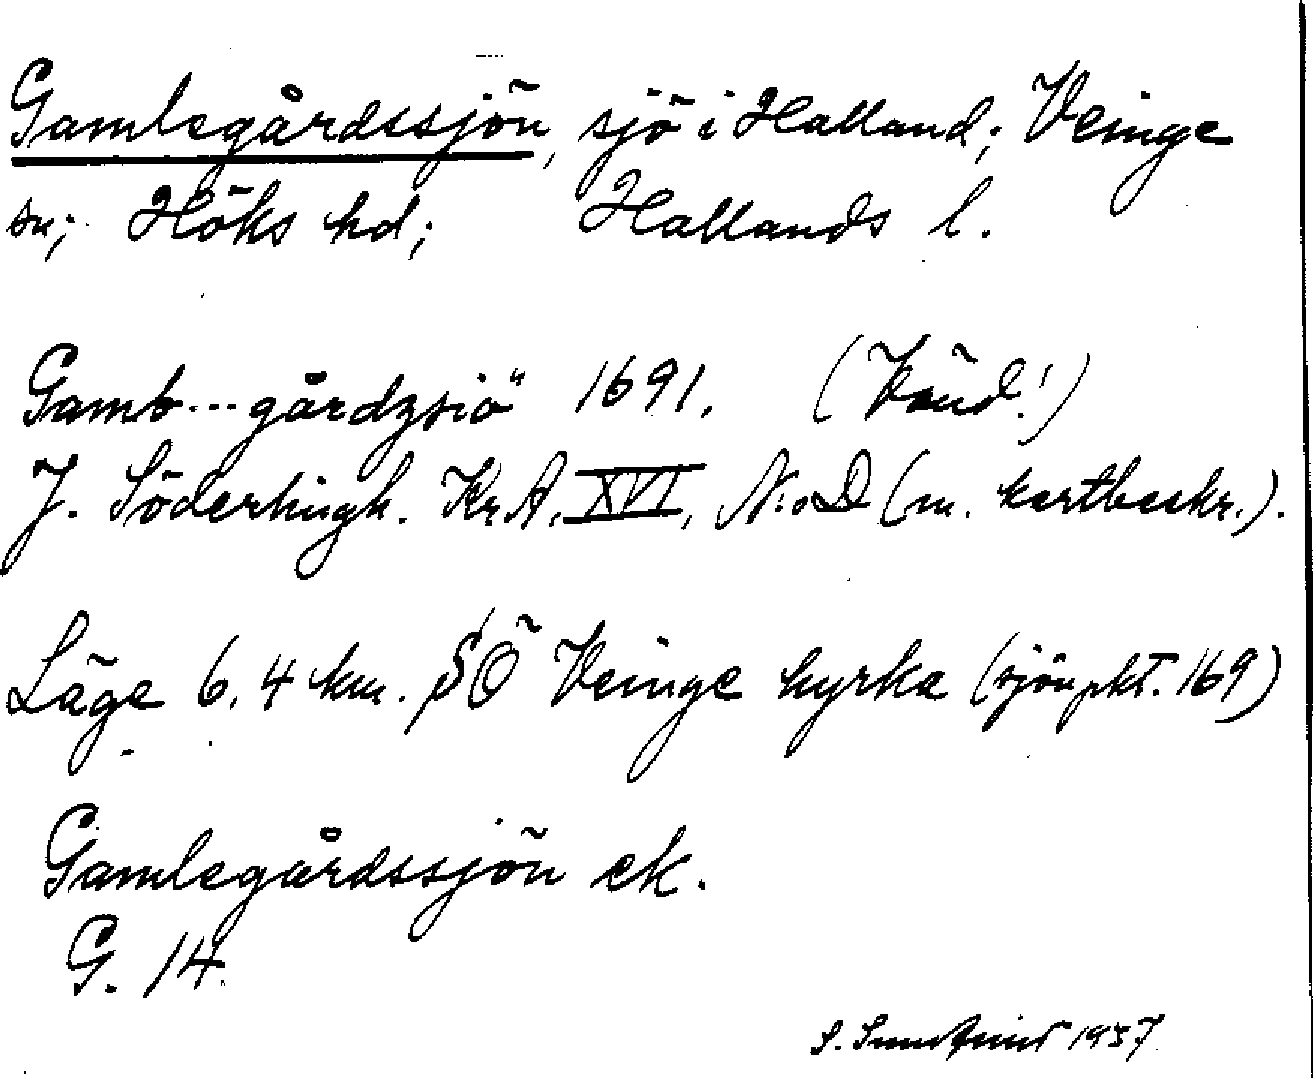 Gamlegårdssjön, sjö i Halland; Veinge
sn; Höks hd; Hallands l.
Gamb...gårdzsiö" 1691. (Könd!)
J. Söderhingh. Kr.A. XVI, N:o D (m. kartbeskr.).
Läge 6,4 km. SÖ Veinge kyrka (sjönpkt. 169)
Gamlegårdssjön ek.
G. 14.
S. 1937